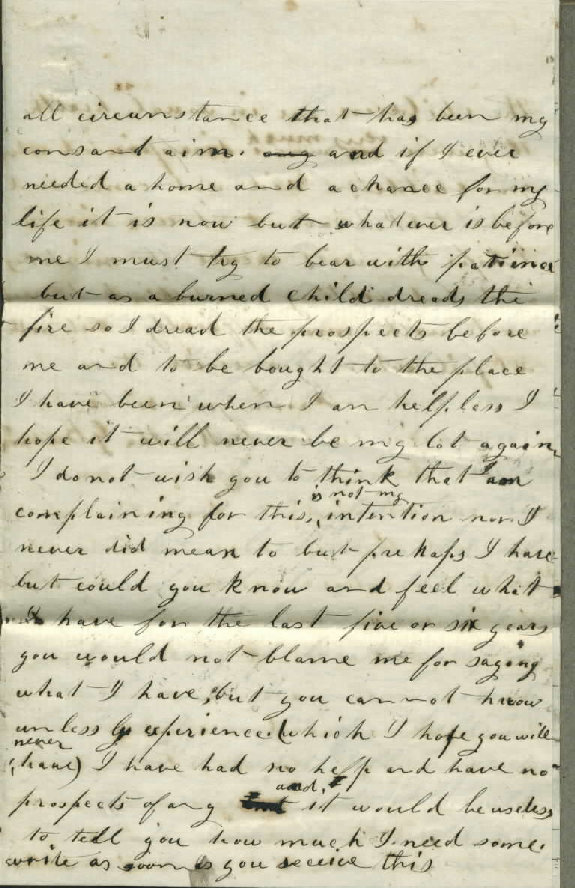 all circumstance that has been my
consant aim. any and if I ever
needed a home and a chance for my
life it is now but whatever is before
me I must try to bear with patiince
but as a burned child dreads the
fire so I dread the prospects before
me and to be bought to the place
I have been when I am helpless I
hope it will never be my lot again
I do not wish you to think that I am
complaining for this is not my intention nor I
never did mean to but prehaps I have
but could you know and feel what
I have for the last five or six years
you would not blame me for saying
what I have, but you cannot know
unless by experience (which I hope you will
never have) I have had no help and have no
prospects of any and, it would be useless
to tell you how much I need some.
write as soon as you receive this